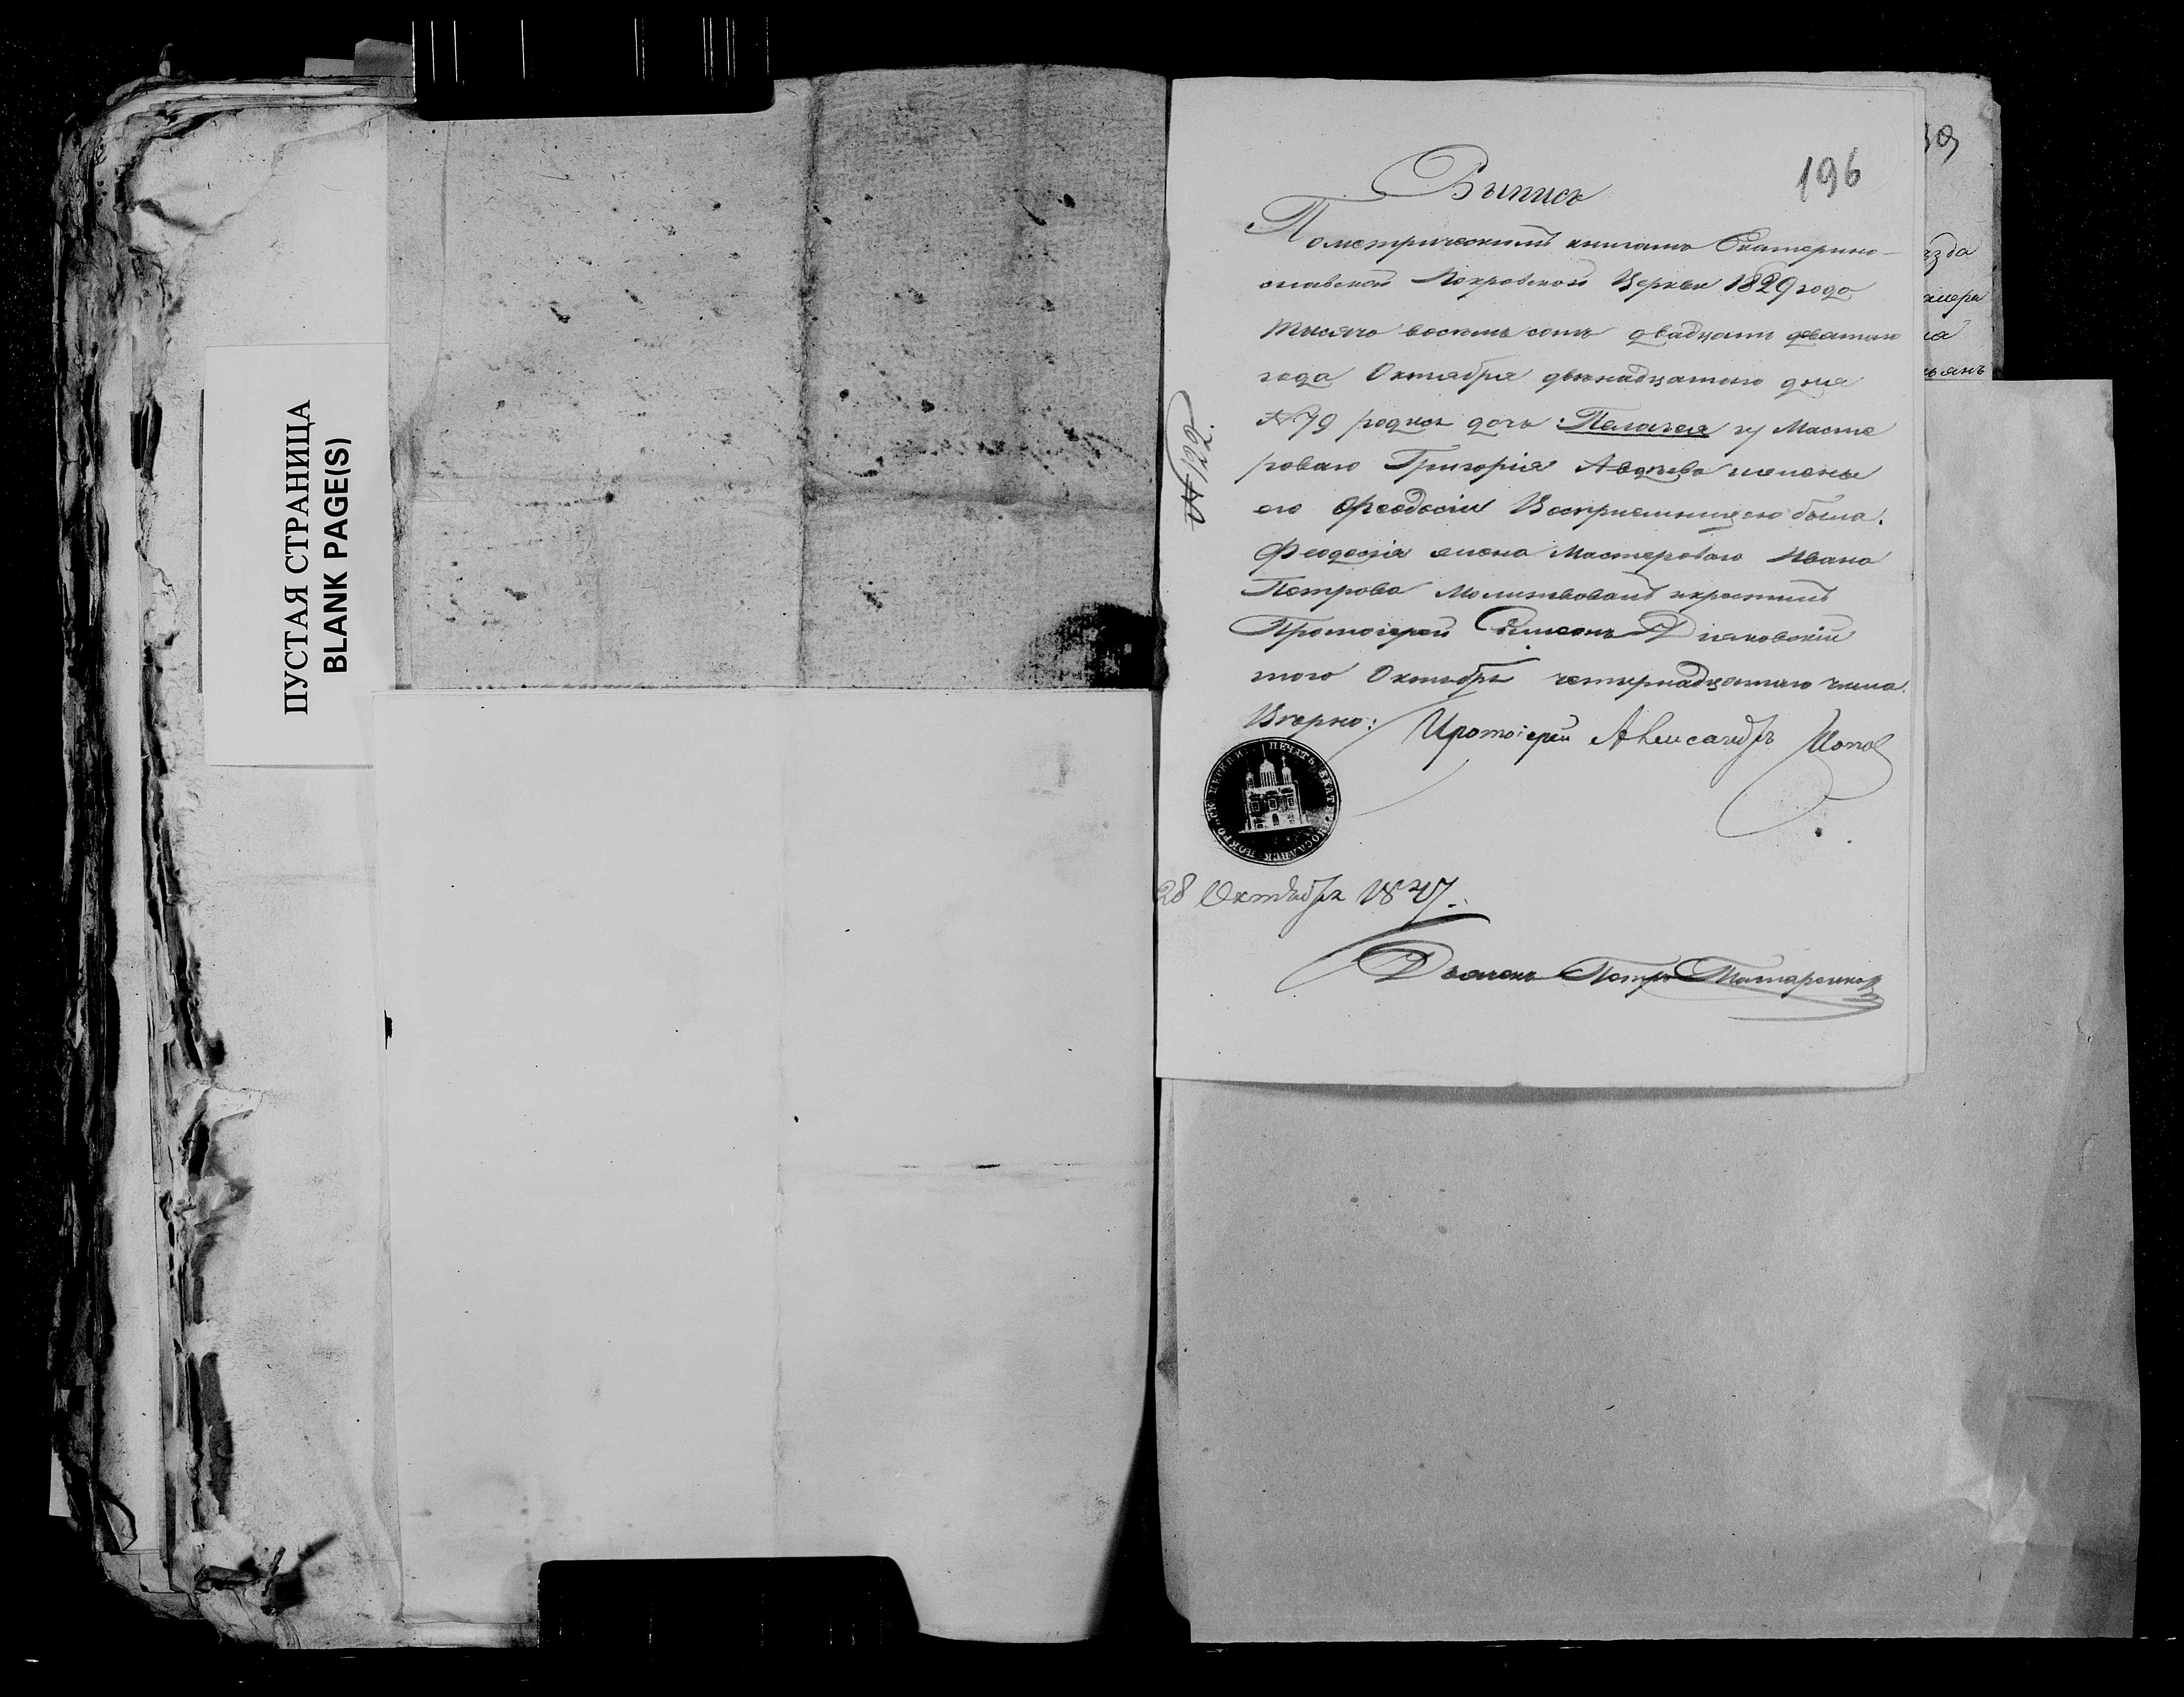 ПУСТАЯ СТРАНИЦА
BLANK PAGE(S)
196
Выпись
По метрическимъ книгамъ Екатерино-
славской Покровской Церкви 1829 года
тысяча восемь сотъ двадцать девятаго
года Октября двенадцатого дня
№ 79 родись дочь: Пелагея у Масте
роваго Григорія Авдѣева и жены
его Феодосіи Восприемницею была.
Феодосія жена Мастероваго Ивана
Петрова Молитвовалъ и крестилъ
Протоіерей Симеонъ Дияковскій
того Октября четырнадцатаго числа.
Вѣрно: Протоіерей Александръ Попов
№ 122.
ПЕЧАТЬ ЕКАТЕРИНОСЛАВСК ПОКРОВСК ЦЕРКВИ
28 Октября 1847.
Дьяконъ Петръ Татаренков